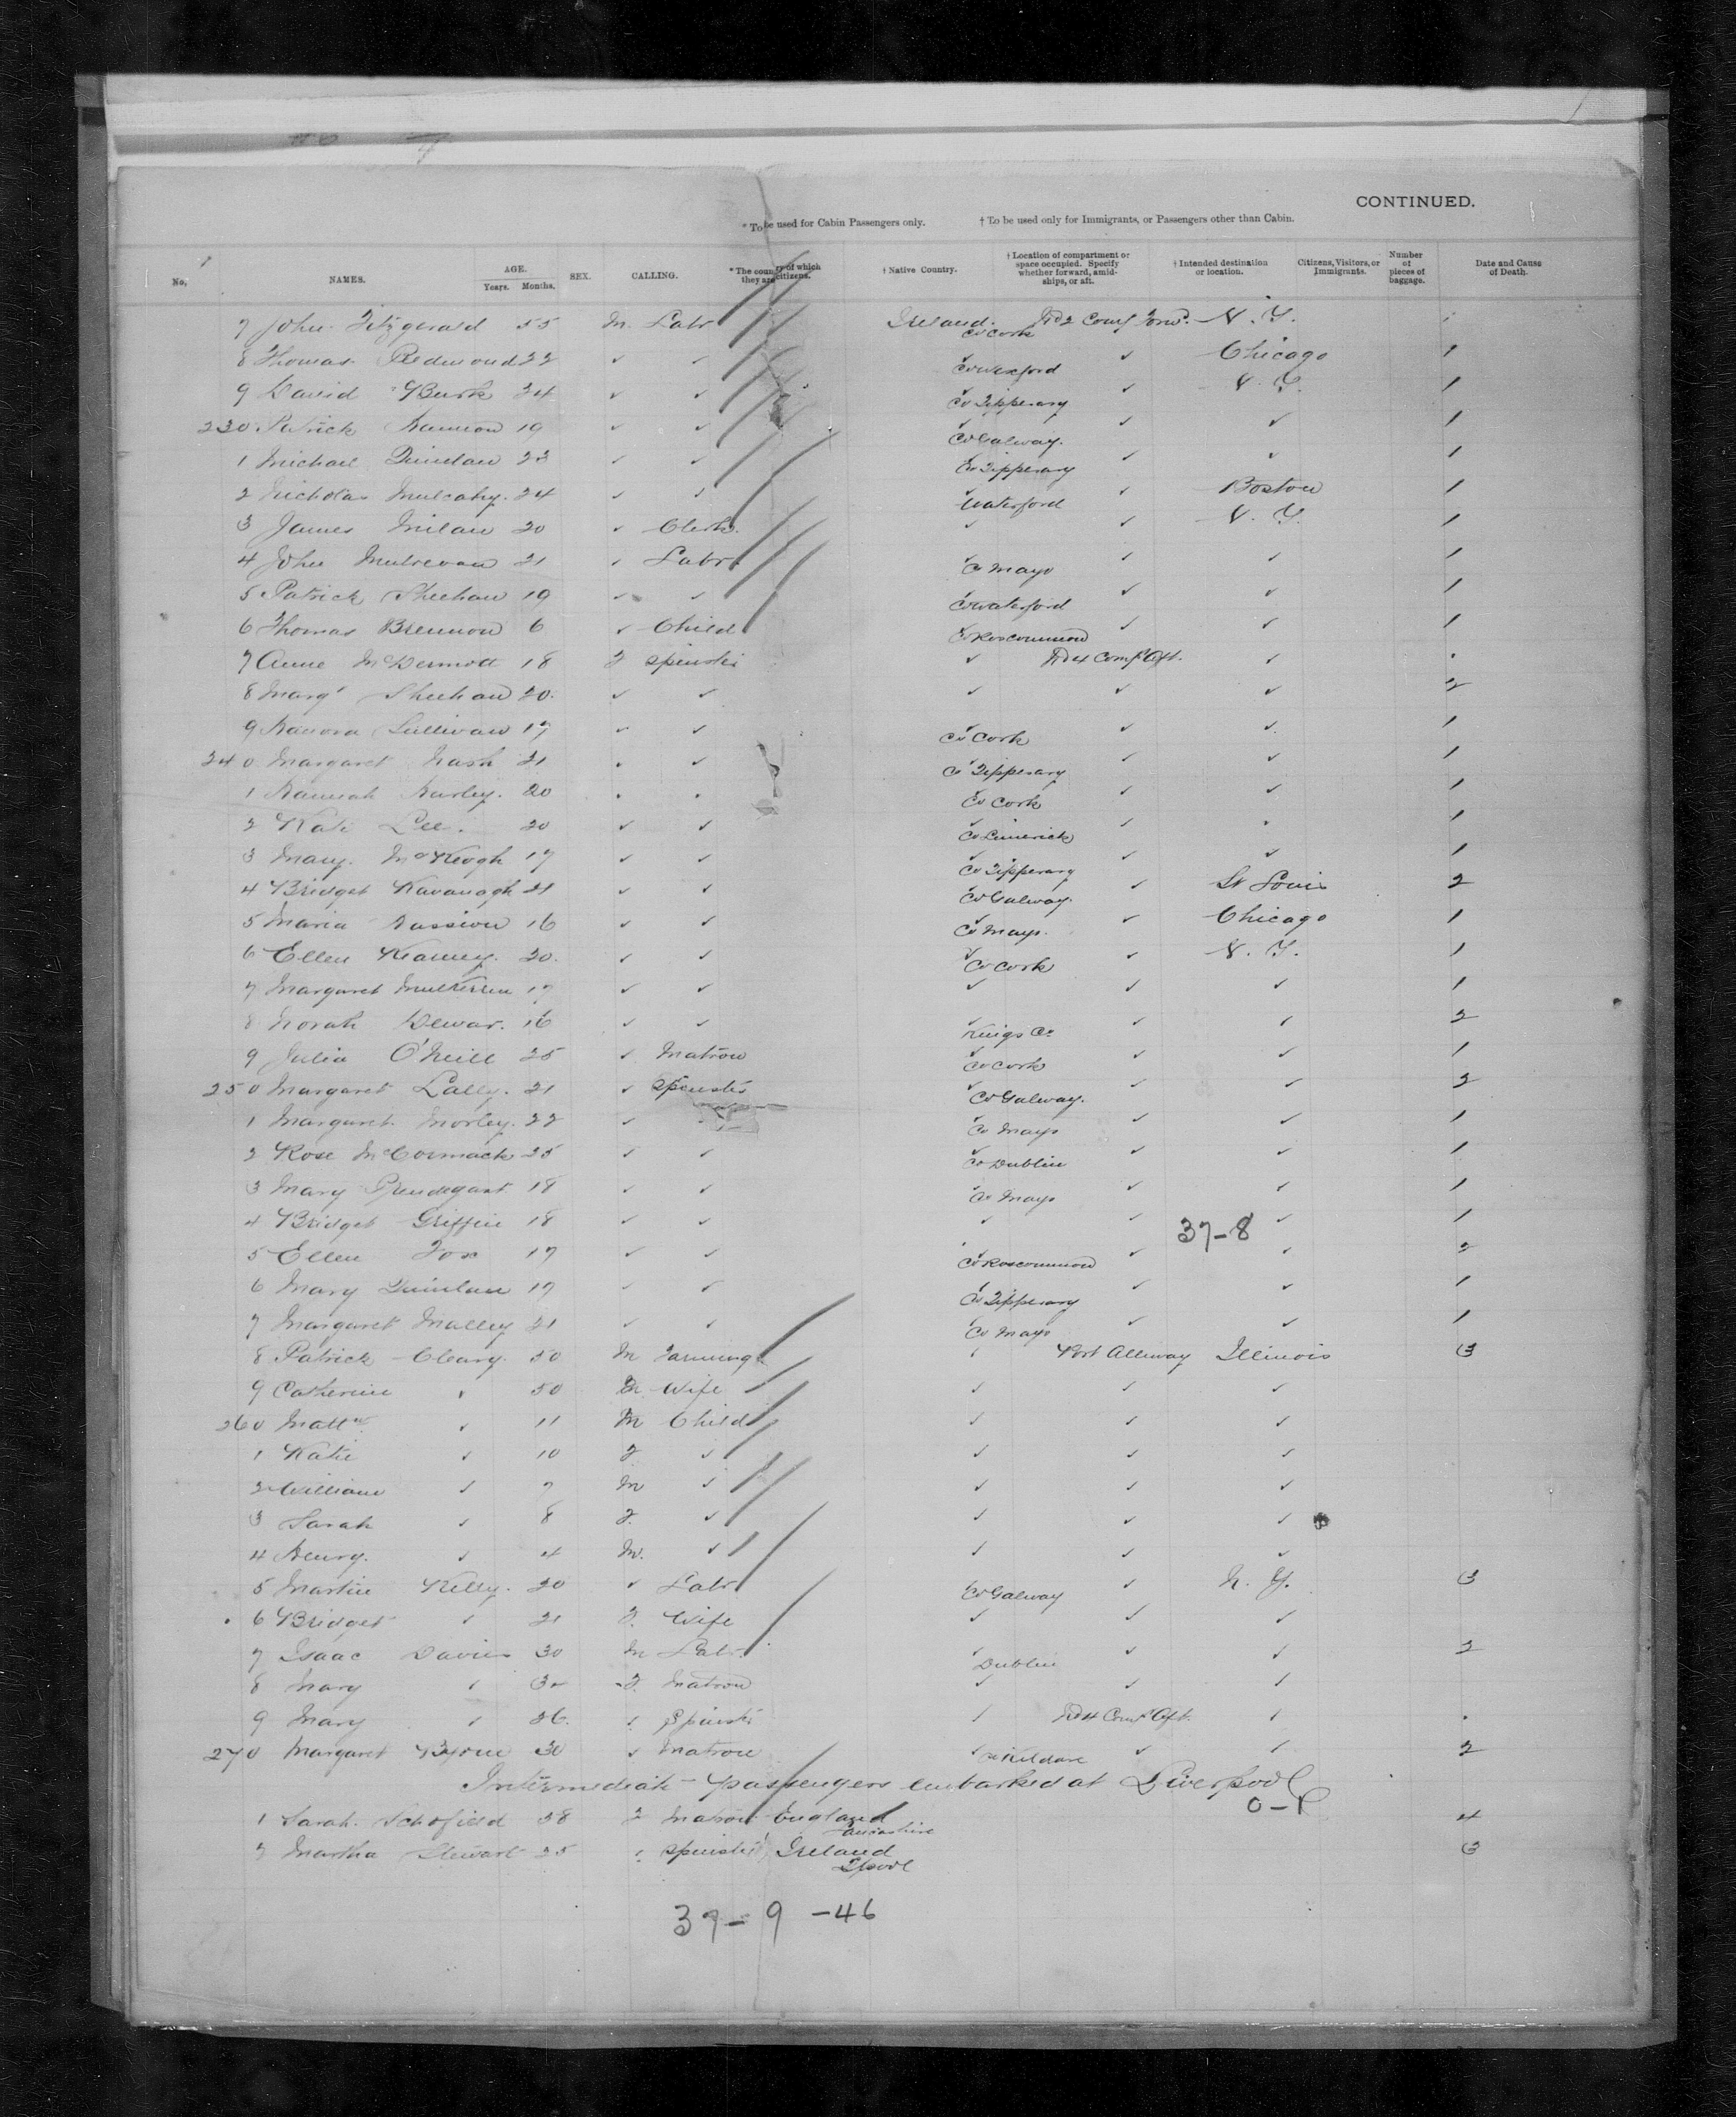 CONTINUED.
* To be used for Cabin Passengers only. † To be used only for Immigrants, or Passengers other than Cabin.
No. NAMES. AGE. Years. Months. SEX. CALLING. * The country of which they are citizens. † Native Country. † Location of compartment or space occupied. Specify whether forward, amidships, or aft. † Intended destination or location. Citizens, Visitors, or Immigrants. Number of pieces of baggage. Date and Cause of Death.
7 John Fitzgerald 55 M. Labr Ireland. Co Cork No 2 Comp Forwd. N. Y.
8 Thomas Redmond 22 ✓ ✓ ✓ Co Wexford ✓ Chicago 1
9 David Burk 24 ✓ ✓ ✓ Co Tipperary ✓ N. Y. 1
230 Patrick Hannon 19 ✓ ✓ ✓ Co Galway. ✓ ✓ 1
1 Michael Quinlan 23 ✓ ✓ ✓ Co Tipperary ✓ ✓ 1
2 Nicholas Mulcahy. 24 ✓ ✓ ✓ Waterford ✓ Boston 1
3 James Milan 20 ✓ Clerk. ✓ ✓ N. Y. 1
4 John 21 ✓ Labr ✓ Co Mayo ✓ ✓ 1
5 Patrick Sheehan 19 ✓ ✓ ✓ Co Waterford ✓ ✓ 1
6 Thomas Brennon 6 ✓ Child ✓ Co Roscommon ✓ ✓ 1
7 Anne McDermott 18 F Spinster ✓ No 4 Compt Aft. ✓
8 Margt Sheehan 20. ✓ ✓ ✓ ✓ ✓ 2
9 Hanora Sullivan 17 ✓ ✓ ✓ Co Cork ✓ ✓ 1
240 Margaret Nash 21 ✓ ✓ Co Tipperary ✓ ✓ 1
1 Hannah Hurley. 20 ✓ Co Cork ✓ ✓ 1
2 Kate Lee. 20 ✓ ✓ ✓ Co Limerick ✓ 1
3 Mary. McKeogh 17 ✓ ✓ ✓ Co Tipperary ✓ ✓ 1
4 Bridget Kavanagh 21 ✓ ✓ ✓ Co Galway. ✓ St Louis 2
5 Maria 16 ✓ ✓ ✓ Co Mayo. ✓ Chicago 1
6 Ellen Kearney. 20. ✓ ✓ ✓ Co Cork ✓ N. Y. 1
7 Margaret Mulkerrin 17 ✓ ✓ ✓ ✓ ✓ 1
8 Norah Dewar. 16 ✓ ✓ ✓ Kings Co ✓ ✓ 2
9 Julia O'Neill 25 ✓ Matron ✓ Co Cork ✓ ✓ 1
250 Margaret Lally. 21 ✓ Spinster ✓ Co Galway. ✓ ✓ 2
1 Margaret Morley. 22 ✓ ✓ Co Mayo ✓ ✓ 1
2 Rose McCormack 25 ✓ ✓ ✓ Co Dublin ✓ ✓ 1
3 Mary Prendegast 18 ✓ ✓ ✓ Co Mayo ✓ ✓ 1
4 Bridget Griffin 18 ✓ ✓ ✓ ✓ 37-8 ✓ 1
5 Ellen Fox 17 ✓ ✓ ✓ Co Roscommon ✓ ✓ 2
6 Mary Quinlan 19 ✓ ✓ ✓ Co Tipperary ✓ ✓ 1
7 Margaret Malley 21 ✓ ✓ ✓ Co Mayo ✓ ✓ 1
8 Patrick Cleary. 50 M Port Alleway Illinois 3
9 Catherine ✓ 50 Wife ✓ ✓ ✓
260 Mattw ✓ 11 M Child ✓ ✓ ✓
1 Katie ✓ 10 F ✓ ✓ ✓ ✓
2 William ✓ 7 M ✓ ✓ ✓ ✓
3 Sarah ✓ 8 F. ✓ ✓ ✓ ✓
4 Henry. ✓ 4 M. ✓ ✓ ✓ ✓
5 Martin Kelly. 20 ✓ Labr Co Galway ✓ N. Y. 3
6 Bridget ✓ 21 F. Wife ✓ ✓ ✓
7 Isaac Davies 30 M Labr. ✓ Dublin ✓ ✓ 2
8 Mary ✓ F. Matron ✓ ✓ ✓
9 Mary ✓ 26. Spinster No 4 Compt Aft.
270 Margaret Byrne 30 ✓ Matron ✓ Co Kildare ✓ ✓ 2
Intermediate passengers embarked at Liverpool
0-1
1 Sarah Schofield 58 F Matron England Lancashire 4
2 Martha Stewart 25 Spinster Ireland 3
37-9 -46